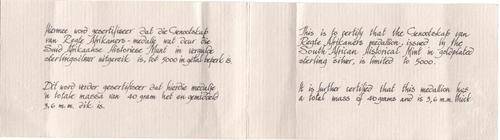 Hiermee word gesertifiseer dat die Genootskap
van Regte Afrikaners-medalje wat deur die
Suid Afrikaanse Historiese Munt in vergulde
sterlingsilwer uitgereik is, tot 5000 in getal beperk is.
Dit word verder gesertifiseer dat hierdie medalje
'n totale massa van 40 gram het en gemiddeld
3,6 m.m. dik is.
This is to certify that the Genootskap van
Regte Afrikaners medallion, issued by the
South African Historical Mint in goldplated
sterling silver, is limited to 5000.
It is further certified that this medallion has
a total mass of 40 grams and is 3,6 m.m. thick